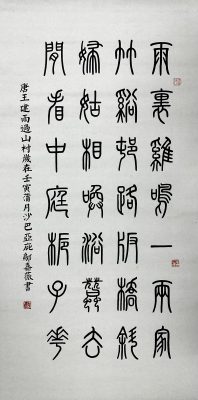 雨裏雞鳴一兩家
竹谿邨路版橋斜
婦姑相喚浴蠶去
閒看中庭梔子花
唐王建雨過山村歲在壬寅蒲月沙巴亞庇鄔嘉薇書